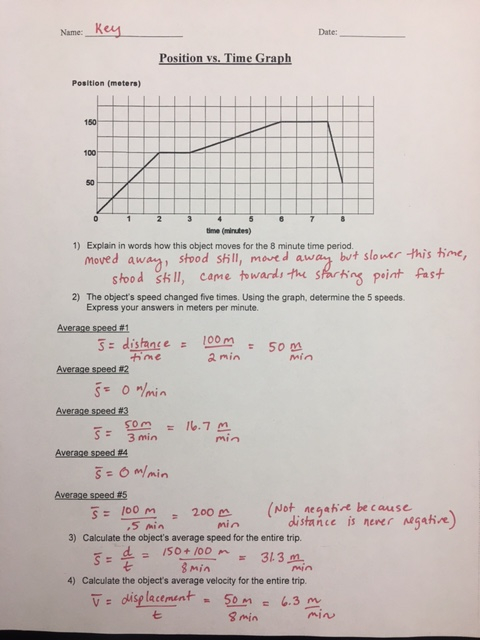 Name: Key Date:
Position vs. Time Graph
Position (meters)
150
100
50
0 1 2 3 4 5 6 7 8
time (minutes)
1) Explain in words how this object moves for the 8 minute time period.
moved away, stood still, moved away but slower this time,
stood still, came towards the starting point fast
2) The object's speed changed five times. Using the graph, determine the 5 speeds.
Express your answers in meters per minute.
Average speed #1
s̄ = distance/time = 100 m/2 min = 50 m/min
Average speed #2
s̄ = 0 m/min
Average speed #3
s̄ = 50 m/3 min = 16.7 m/min
Average speed #4
s̄ = 0 m/min
Average speed #5
s̄ = 100 m/.5 min = 200 m/min (Not negative because
distance is never negative)
3) Calculate the object's average speed for the entire trip.
s̄ = d/t = 150 + 100 m/8 min = 31.3 m/min
4) Calculate the object's average velocity for the entire trip.
v̄ = displacement/t = 50 m/8 min = 6.3 m/min